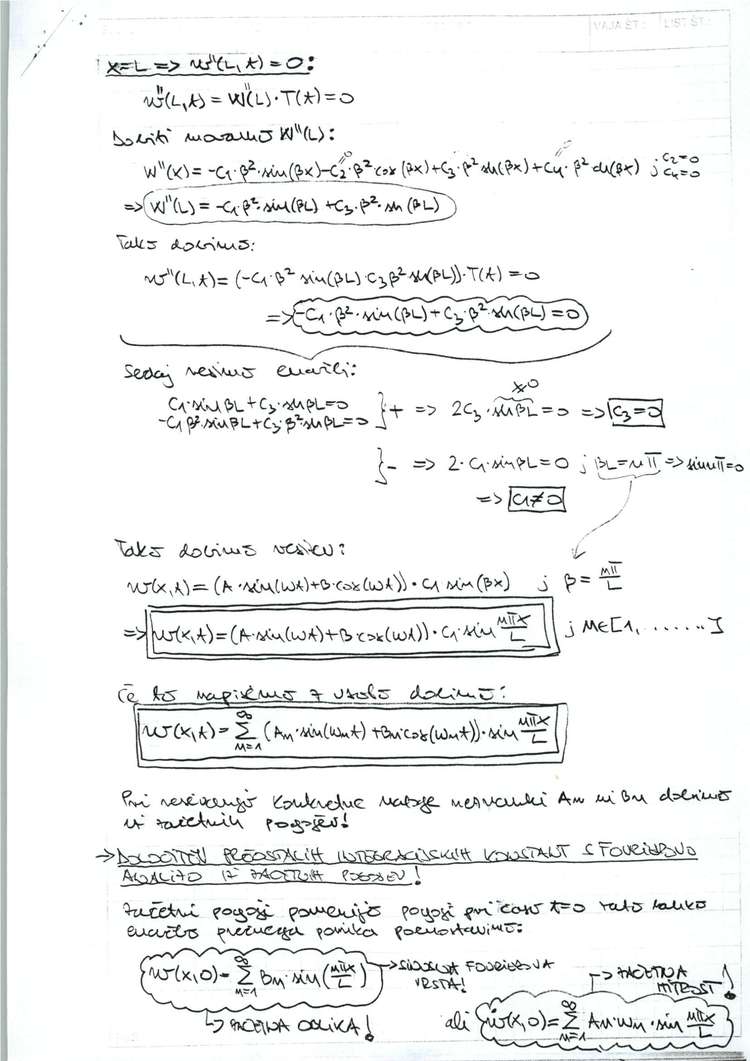 VAJA ŠT.: LIST ŠT.:
x=L => w''(L,t)=0:
w''(L,t) = W''(L)·T(t)=0
Dobiti moramo W''(L):
W''(x) = -C₁·β²·sin(βx)-C₂·β²·cos(βx)+C₃·β²sh(βx)+C₄·β²ch(βx) ; C₂=0 C₄=0
=> W''(L) = -C₁·β²·sin(βL)+C₃·β²·sh(βL)
Tako dobimo:
w''(L,t) = (-C₁·β² sin(βL)·C₃β²sh(βL))·T(t) = 0
=> -C₁·β²·sin(βL)+C₃·β²·sh(βL)=0
Sedaj rešimo enačbi:
C₁·sinβL+C₃·shβL=0
-C₁β²·sinβL+C₃·β²shβL=0 } + => 2C₃·shβL=0 => C₃=0
} - => 2·C₁·sinβL=0 ; βL=nπ => sin nπ=0
=> C₁≠0
Tako dobimo rešitev:
w(x,t)=(A·sin(ωt)+B·cos(ωt))·C₁ sin(βx) ; β = nπ/L
=> w(x,t)=(A·sin(ωt)+B cos(ωt))·C₁·sin nπx/L ; n∈[1, ......]
Če to napišemo z vsoto dobimo:
w(x,t) = ∑ₙ₌₁^∞ (Aₙ·sin(ωₙt)+Bₙcos(ωₙt))·sin nπx/L
Pri reševanju konkretne naloge neznanki Aₙ in Bₙ dobimo
iz začetnih pogojev!
→ DOLOČITEV PREOSTALIH INTEGRACIJSKIH KONSTANT S FOURIEROVO
ANALIZO IZ ZAČETNIH POGOJEV!
Začetni pogoji pomenijo pogoji pri času t=0 tako lahko
enačbo prečnega pomika poenostavimo:
w(x,0)=∑ₙ₌₁^∞ Bₙ·sin(nπx/L) → SINUSNA FOURIEROVA VRSTA!
↳ ZAČETNA OBLIKA!
→ ZAČETNA HITROST!
ali ẇ(x,0)=∑ₙ₌₁^∞ Aₙ·ωₙ·sin nπx/L